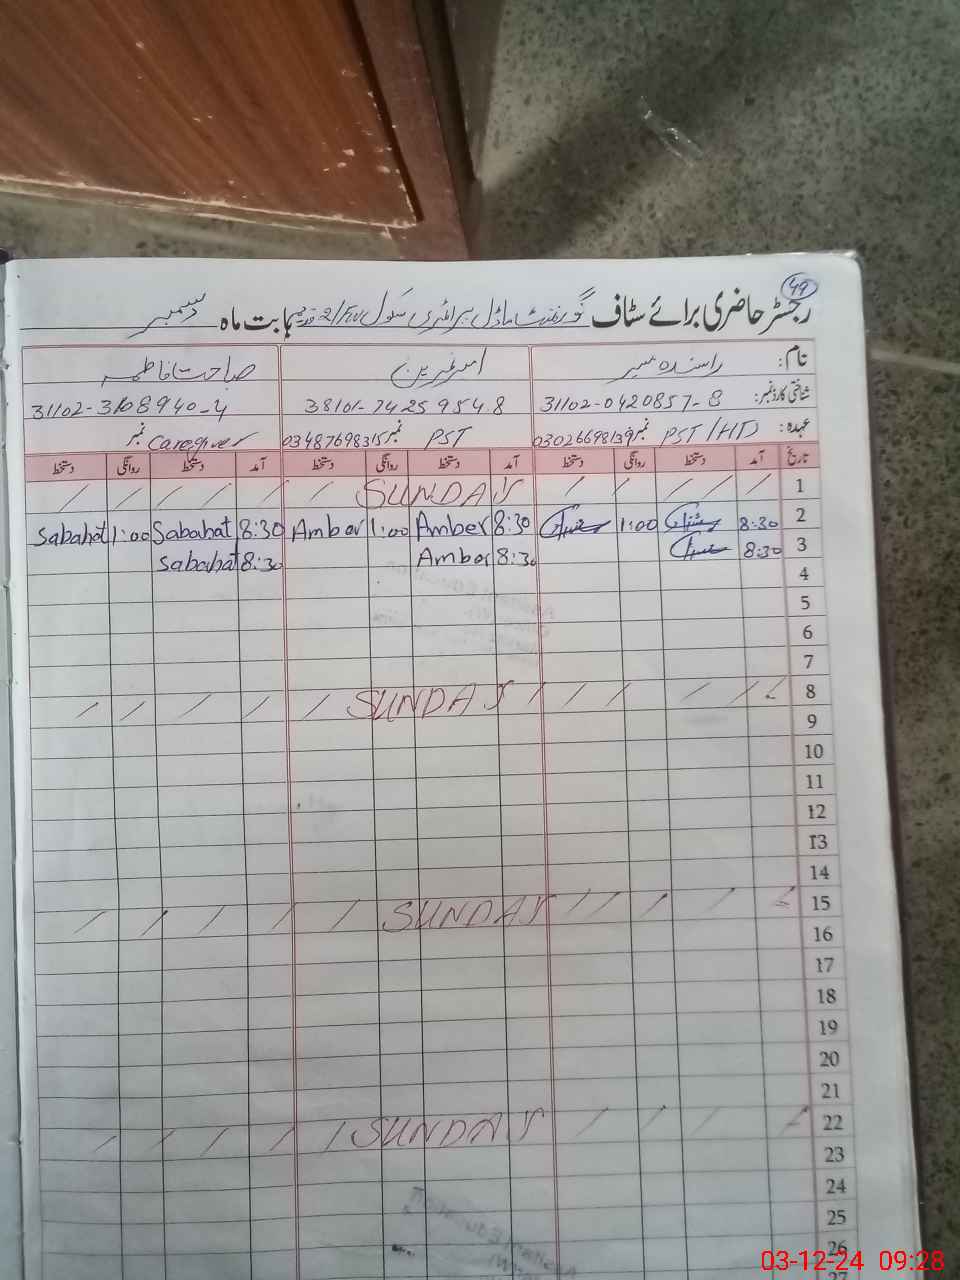 49
رجسٹر حاضری برائے سٹاف گورنمنٹ ماڈل پرائمری سکول بابت ماہ دسمبر
نام: عنبرین صباحت فاطمہ
شناختی کارڈ نمبر: 31102-0420857-8 38101-7425954.8 31102-3108940-4
عہدہ: PST/HT نمبر 03026698139 PST نمبر 03487698315 Caregiver نمبر
تاریخ آمد دستخط روانگی دستخط آمد دستخط روانگی دستخط آمد دستخط روانگی دستخط
1 SUNDAY
2 8:30 1:00 8:30 Amber 1:00 Amber 8:30 Sabahat 1:00 Sabahat
3 8:30 8:30 Amber 8:30 Sabahat
4
5
6
7
8 SUNDAY
9
10
11
12
13
14
15 SUNDAY
16
17
18
19
20
21
22 SUNDAY
23
24
25
26
27
03-12-24 09:28